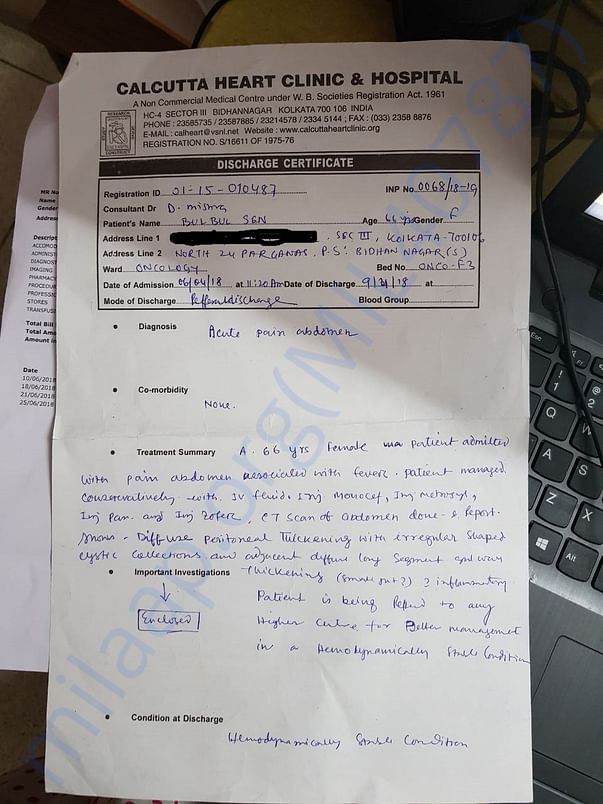 CALCUTTA HEART CLINIC & HOSPITAL
A Non Commercial Medical Centre under W. B. Societies Registration Act. 1961
HC-4 SECTOR III BIDHANNAGAR KOLKATA 700 106 INDIA
PHONE : 23585735 / 23587885 / 23214578 / 2334 5144 ; FAX : (033) 2358 8876
E-MAIL : calheart@vsnl.net Website : www.calcuttaheartclinic.org
REGISTRATION NO. S/16611 OF 1975-76
DISCHARGE CERTIFICATE
Registration ID 01-15-010487 INP No 0068/18-19
Consultant Dr D. mishra
Patient's Name BULBUL SEN Age 66 yrs Gender F
Address Line 1 . SEC III, KOLKATA-700106
Address Line 2 NORTH 24 PARGANAS. P.S: BIDHAN NAGAR (S)
Ward ONCOLOGY Bed No ONCO-F3
Date of Admission 06/04/18 at 11:20 Am Date of Discharge 9/4/18 at
Mode of Discharge Blood Group
• Diagnosis Acute pain abdomen
• Co-morbidity
None.
• Treatment Summary A 66 yrs Female patient admitted
with pain abdomen associated with fever. patient managed
conservatively with IV fluid. Inj Monocef, Inj metrogyl,
Inj Pan. and Inj Zofer, CT scan of abdomen done & Report
shows - Diffuse peritoneal Thickening with irregular shaped
cystic collections and adjacent diffuse long Segment
• Important Investigations Thickening ? inflammatory
Enclosed
Patient is being Referd to any
Higher for Better management
in a Hemodynamically Stable Condition
• Condition at Discharge
Hemodynamically Stable Condition
MR No
Name
Gender
Address
Descript
ACCOMOD
ADMINIST
DIAGNOS
IMAGING
PHARMAC
PROCEDU
PROFESSIO
STORES
TRANSFUS
Total Bill
Total Amo
Amount in
Date
10/06/2018
18/06/2018
21/06/2018
25/06/2018
milaap.org
Esc
!
1
@
2
Q
W
A
S
Z
X
Alt